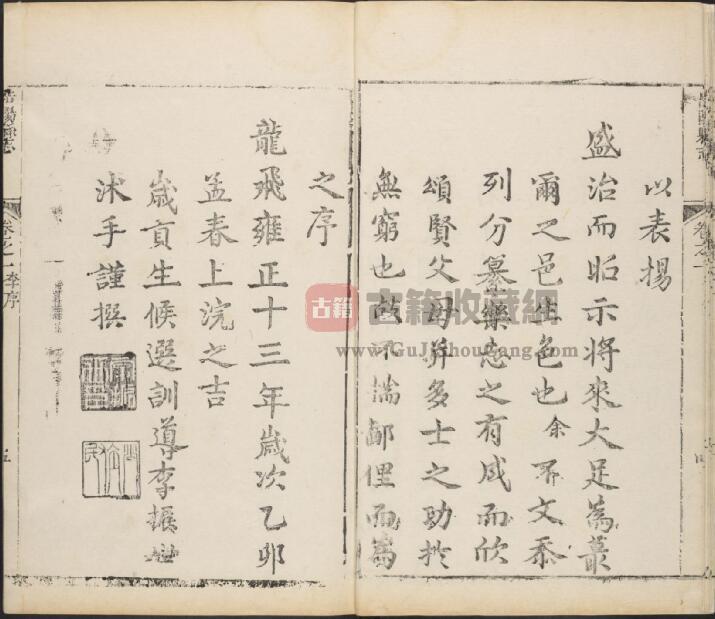 以表揚
盛治而昭示將來大足為叢
爾之邑生色也余不文忝
列分纂樂志之有成而欣
頌賢父母并多士之助於
無窮也故不揣鄙俚而為
之序
龍飛雍正十三年歲次乙卯
孟春上浣之吉
歲貢生候選訓導李振世
沐手謹撰
卷之一
卷之一李序
五
古籍
古籍收藏網
www.GuJiShouCang.com